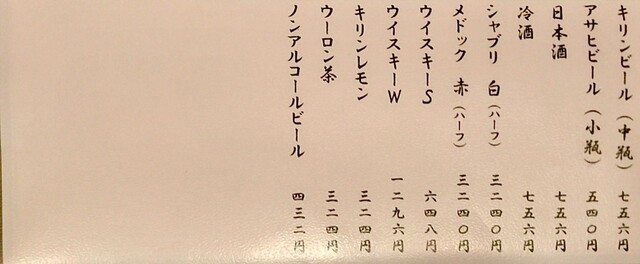 キリンビール（中瓶） 七五六円
アサヒビール（小瓶） 五四〇円
日本酒 七五六円
冷酒 七五六円
シャブリ 白（ハーフ） 三二四〇円
メドック 赤（ハーフ） 三二四〇円
ウイスキーS 六四八円
ウイスキーW 一二九六円
キリンレモン 三二四円
ウーロン茶 三二四円
ノンアルコールビール 四三二円